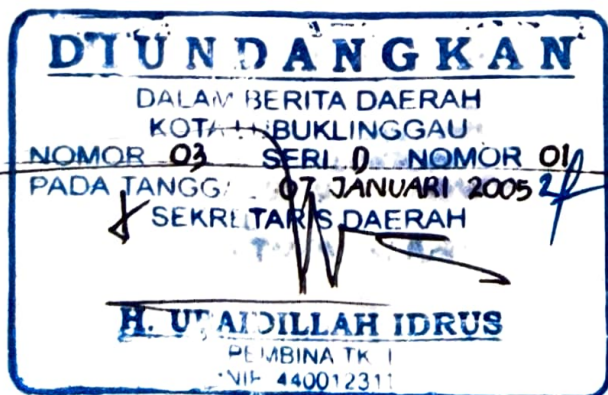 DIUNDANGKAN
DALAM BERITA DAERAH
KOTA LUBUKLINGGAU
NOMOR 03 SERI D NOMOR 01
PADA TANGGAL 07 JANUARI 2005
SEKRETARIS DAERAH
H. UBAIDILLAH IDRUS
PEMBINA TK I
NIP 440012311